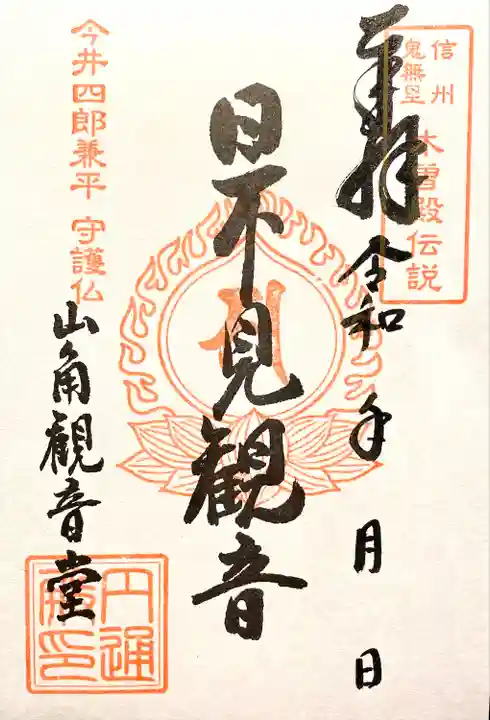 信州
鬼無里
木曽殿伝説
奉拝
令和 年 月 日
日不見観音
今井四郎兼平 守護仏
山角観音堂
円通